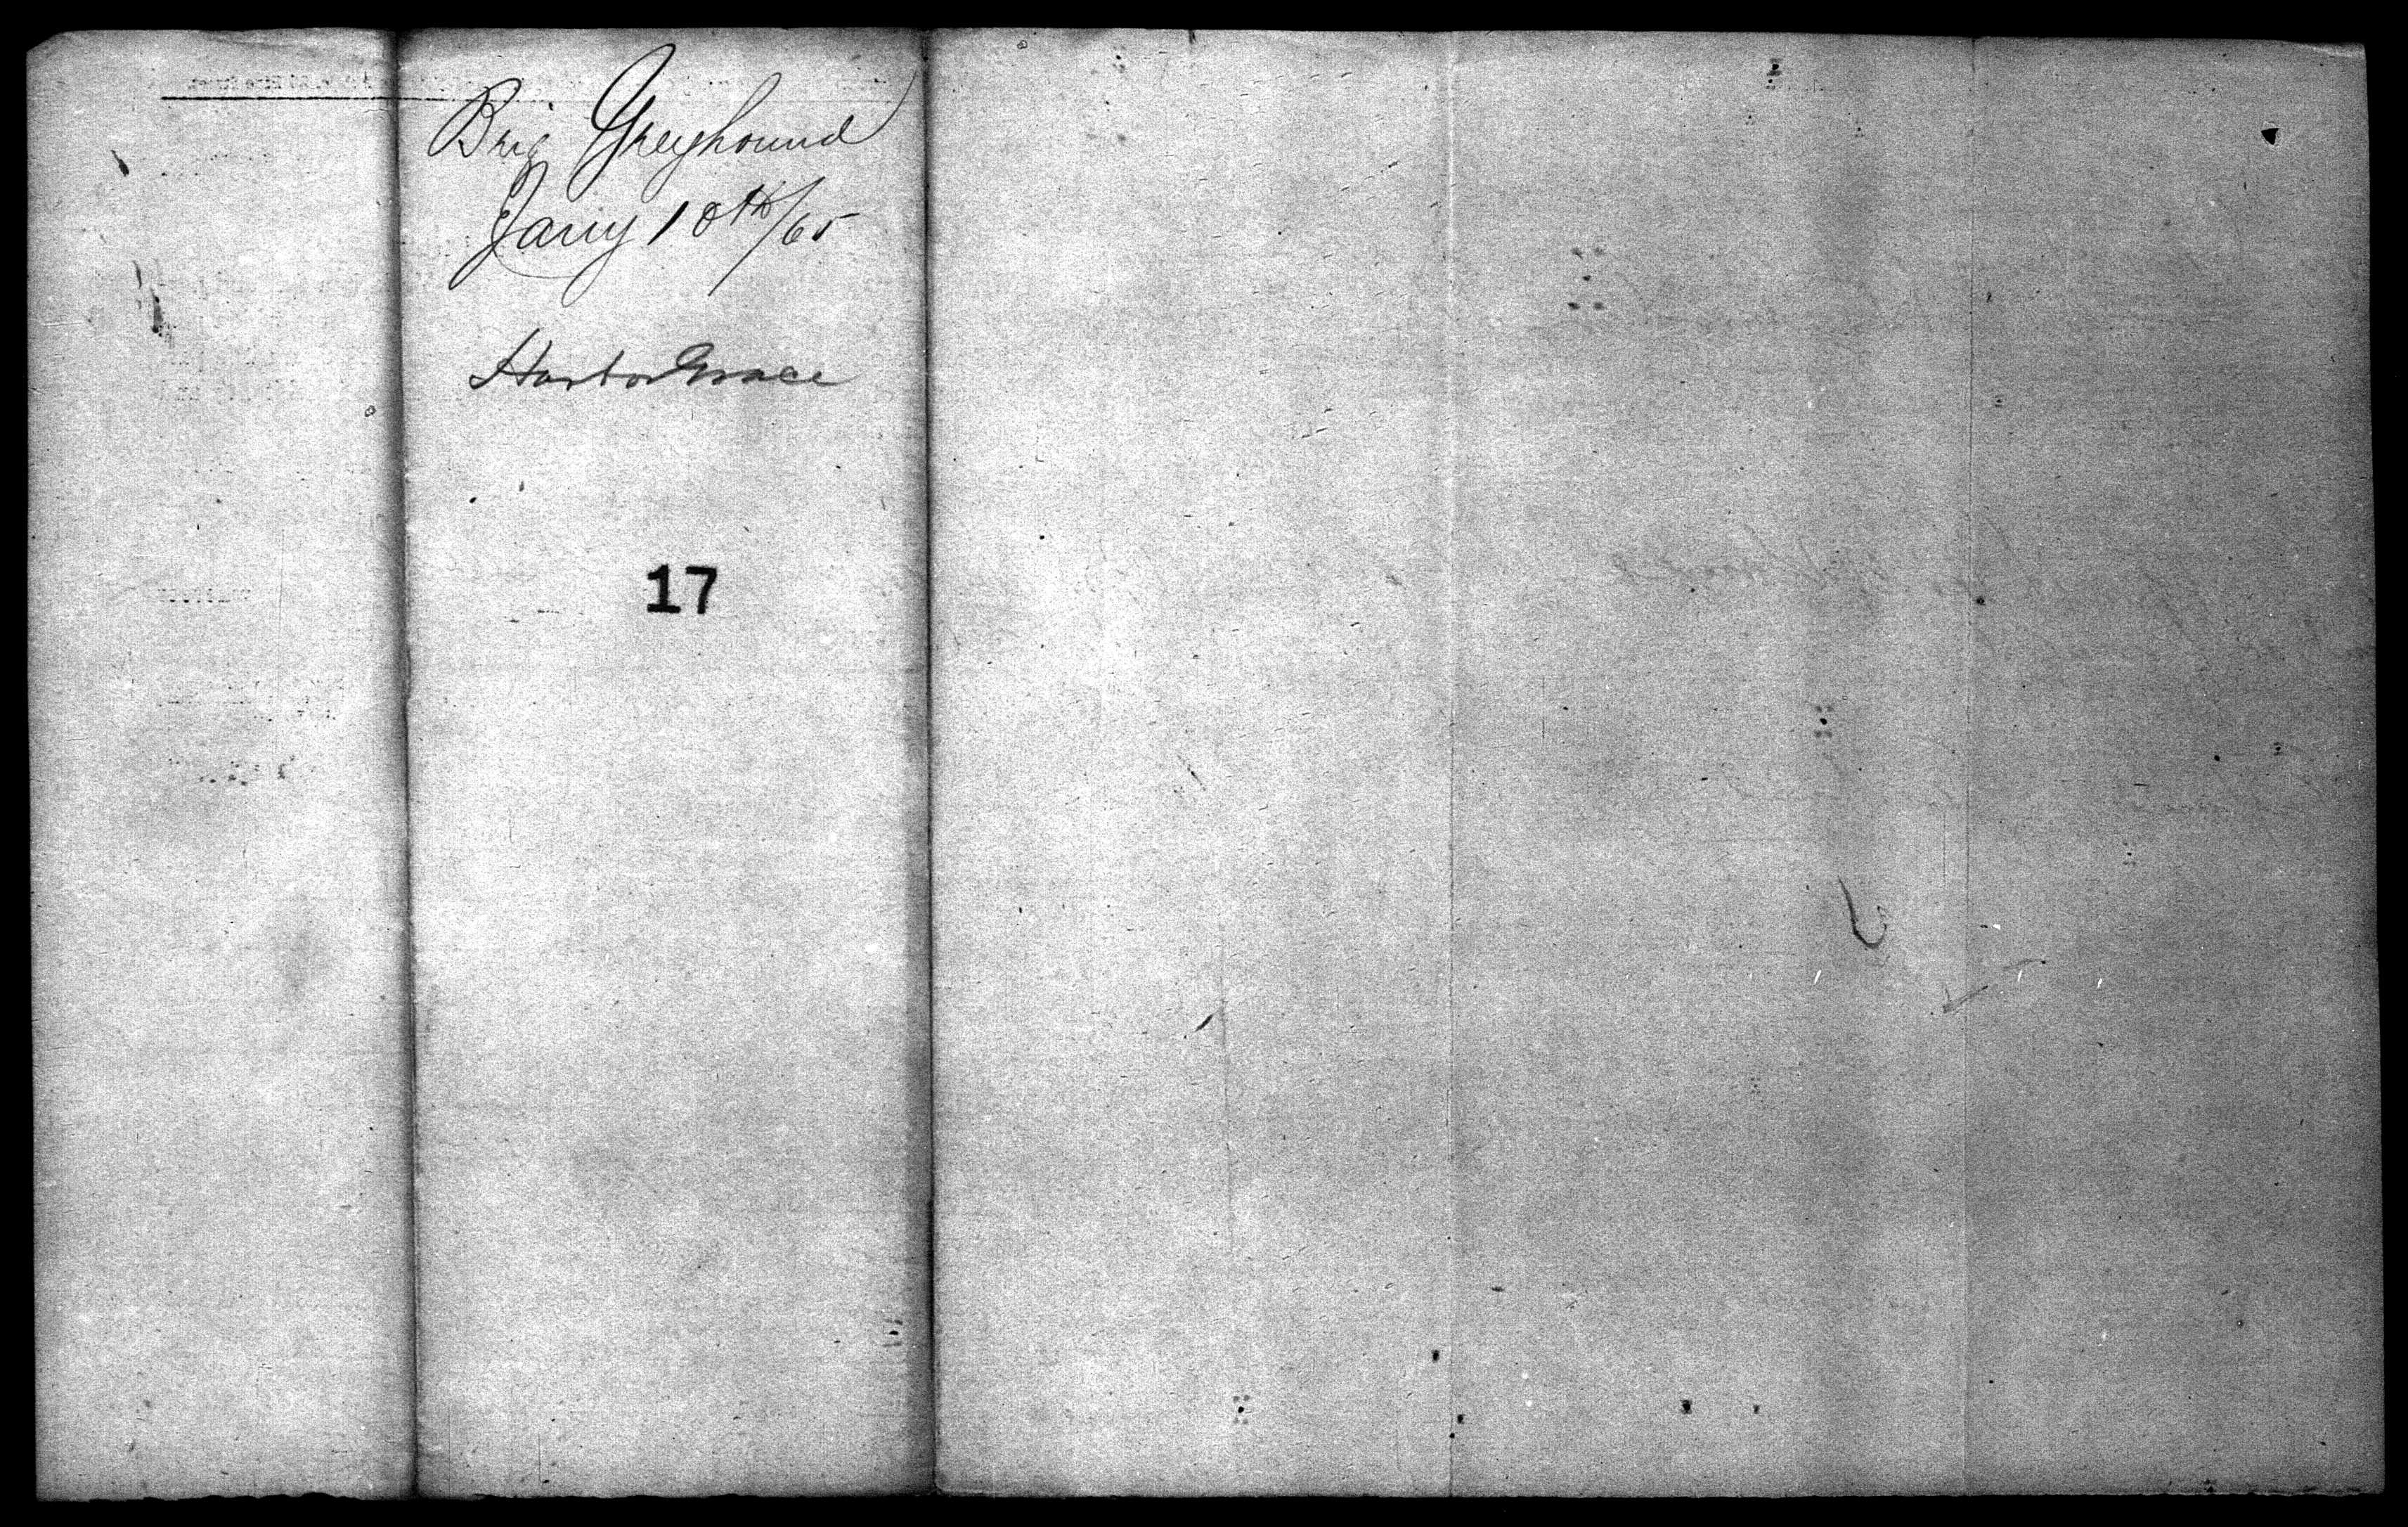 Brig Greyhound
Jany 10th/65
Harbor Grace
17